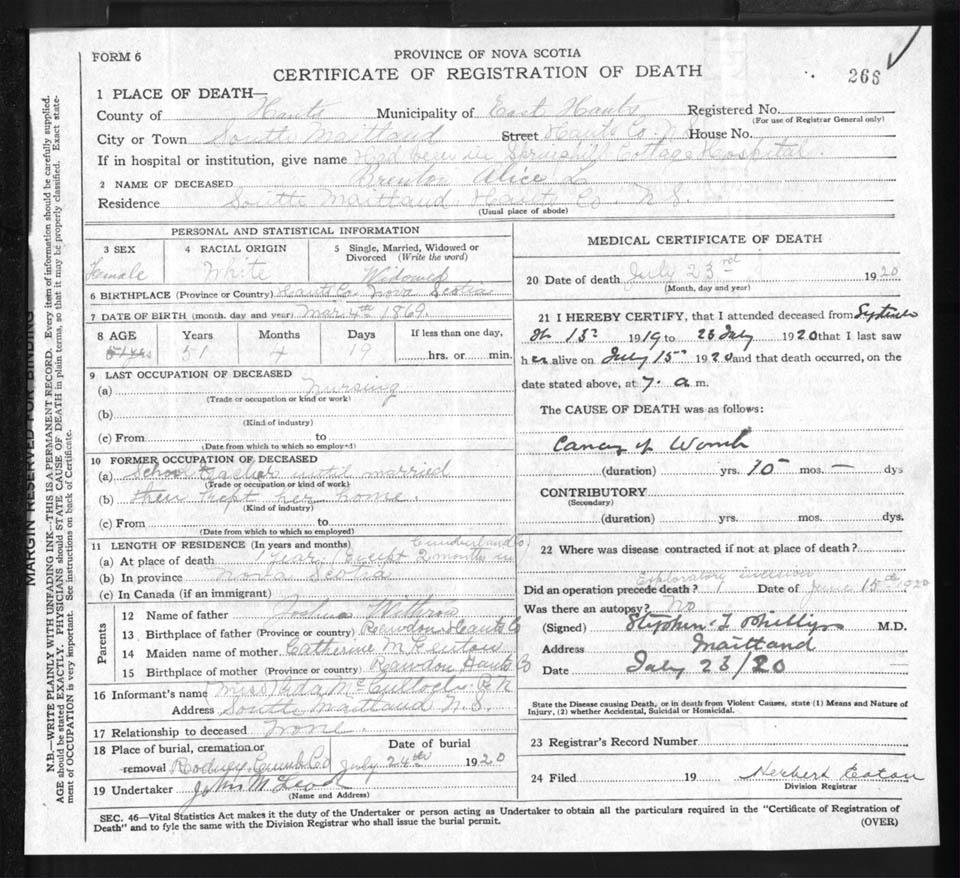 FORM 6
PROVINCE OF NOVA SCOTIA
CERTIFICATE OF REGISTRATION OF DEATH
268
1 PLACE OF DEATH—
County of Hants Municipality of East Hants Registered No.
(For use of Registrar General only)
City or Town South Maitland Street Hants Co. N.S. House No.
If in hospital or institution, give name Had been in Springhill Cottage Hospital.
2 NAME OF DECEASED Brenton Alice L
Residence South Maitland Hants Co. N.S.
(Usual place of abode)
PERSONAL AND STATISTICAL INFORMATION
3 SEX 4 RACIAL ORIGIN 5 Single, Married, Widowed or Divorced (Write the word)
Female White Widowed
6 BIRTHPLACE (Province or Country) Hants Co. Nova Scotia
7 DATE OF BIRTH (month, day and year) Mar. 4th 1869.
8 AGE Years Months Days If less than one day,
51 yrs 51 4 19 hrs. or min.
9 LAST OCCUPATION OF DECEASED
(a) Nursing
(Trade or occupation or kind of work)
(b)
(Kind of industry)
(c) From to
(Date from which to which so employed)
10 FORMER OCCUPATION OF DECEASED
(a) School teacher until married
(Trade or occupation or kind of work)
(b) then kept her home.
(Kind of industry)
(c) From to
(Date from which to which so employed)
11 LENGTH OF RESIDENCE (In years and months) Cumberland Co.
(a) At place of death 1 year (Except 2 months in
(b) In province Nova Scotia
(c) In Canada (if an immigrant)
Parents
12 Name of father Joshua Withrow
13 Birthplace of father (Province or country) Rawdon Hants Co
14 Maiden name of mother Catherine
15 Birthplace of mother (Province or country) Rawdon Hants Co
16 Informant's name Miss McCulloch R N
Address South Maitland N.S.
17 Relationship to deceased None
18 Place of burial, cremation or Date of burial
removal Rodney Cumb. Co July 24th 1920
19 Undertaker John McLeod
(Name and Address)
MEDICAL CERTIFICATE OF DEATH
20 Date of death July 23rd 1920
(Month, day and year)
21 I HEREBY CERTIFY, that I attended deceased from Septem
ber 13 1919 to 23 July 1920 that I last saw
her alive on July 15 1920 and that death occurred, on the
date stated above, at 7. a m.
The CAUSE OF DEATH was as follows:
Cancer of Womb
(duration) yrs. 10 mos. — dys
CONTRIBUTORY
(Secondary)
(duration) yrs. mos. dys.
22 Where was disease contracted if not at place of death?
Exploratory incision
Did an operation precede death? Date of June 15th 1920
Was there an autopsy? No
(Signed) Stephen M.D.
Address Maitland
Date July 23/20
State the Disease causing Death, or in death from Violent Causes, state (1) Means and Nature of
Injury, (2) whether Accidental, Suicidal or Homicidal.
23 Registrar's Record Number
24 Filed 19 Herbert Eaton
Division Registrar
SEC. 46—Vital Statistics Act makes it the duty of the Undertaker or person acting as Undertaker to obtain all the particulars required in the "Certificate of Registration of
Death" and to fyle the same with the Division Registrar who shall issue the burial permit.
(OVER)
MARGIN RESERVED FOR BINDING
N.B.—WRITE PLAINLY WITH UNFADING INK—THIS IS A PERMANENT RECORD. Every item of information should be carefully supplied.
AGE should be stated EXACTLY. PHYSICIANS should STATE CAUSE OF DEATH in plain terms, so that it may be properly classified. Exact state-
ment of OCCUPATION is very important. See instructions on back of Certificate.